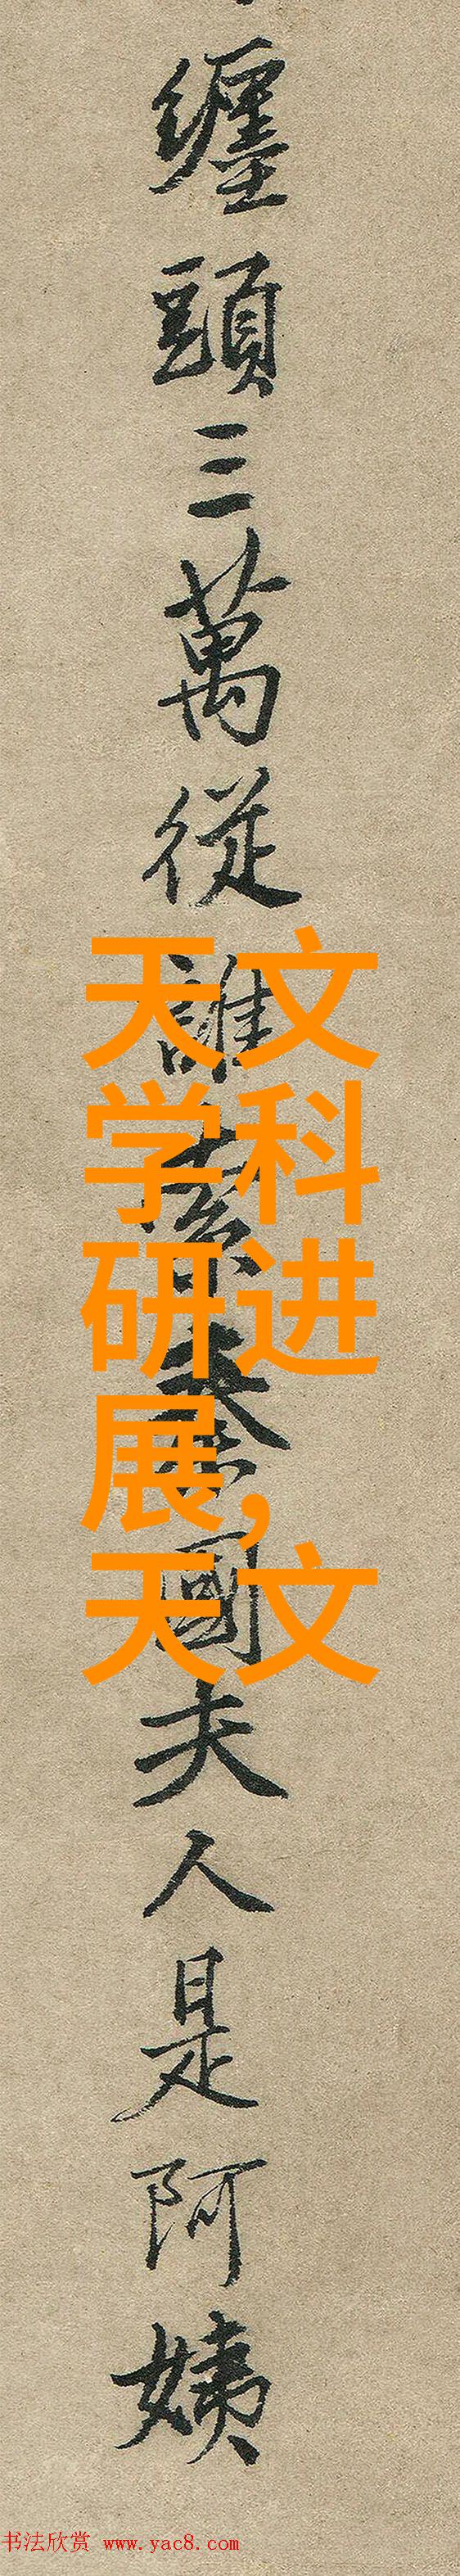 纏
頭
三
萬
従
誰
索
秦
國
夫
人
是
阿
姨
天文
学科
研进
展,
天文
书法欣赏 www.yac8.com